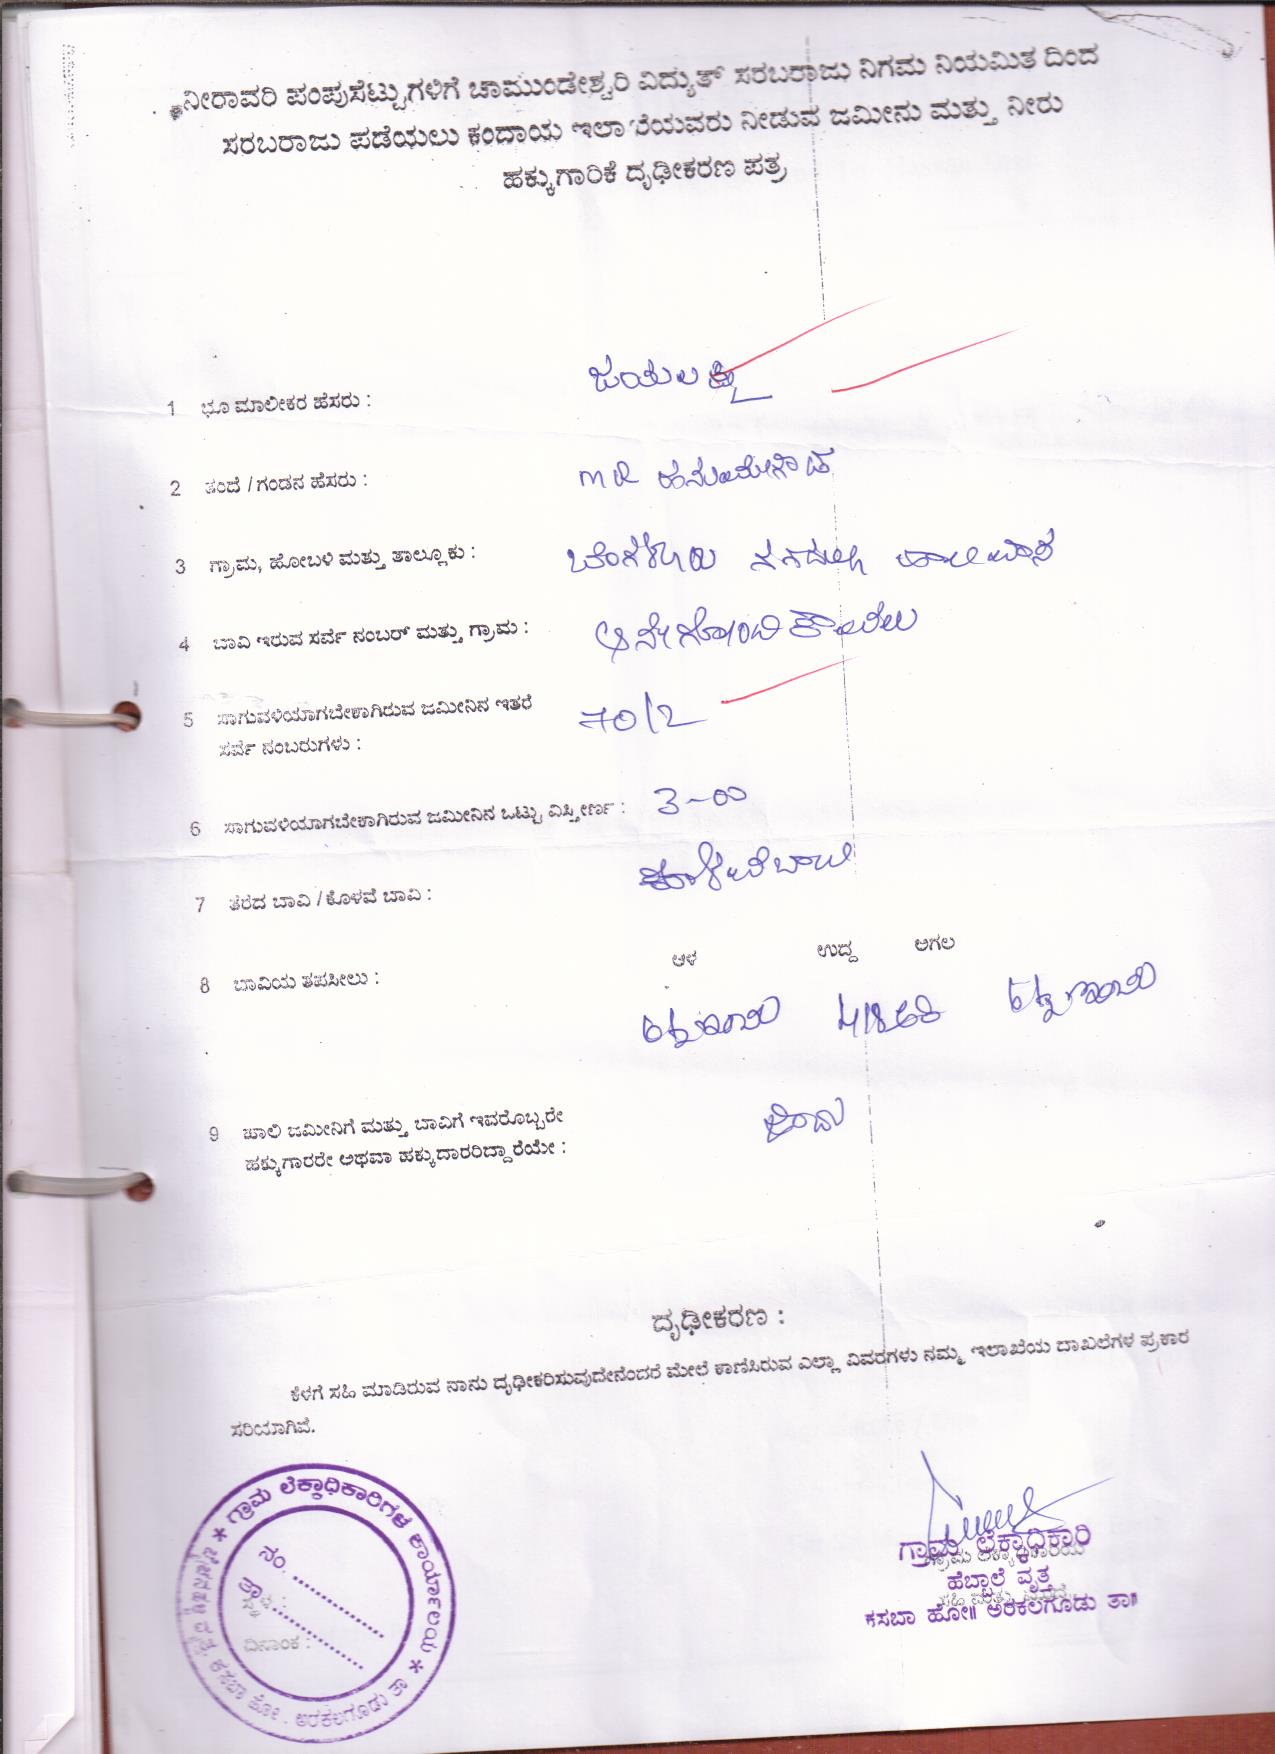 ನೀರಾವರಿ ಪಂಪುಸೆಟ್ಟುಗಳಿಗೆ ಚಾಮುಂಡೇಶ್ವರಿ ವಿದ್ಯುತ್ ಸರಬರಾಜು ನಿಗಮ ನಿಯಮಿತ ದಿಂದ
ಸರಬರಾಜು ಪಡೆಯಲು ಕಂದಾಯ ಇಲಾಖೆಯವರು ನೀಡುವ ಜಮೀನು ಮತ್ತು ನೀರು
ಹಕ್ಕುಗಾರಿಕೆ ದೃಢೀಕರಣ ಪತ್ರ
1 ಭೂ ಮಾಲೀಕರ ಹೆಸರು : ಜಯಲಕ್ಷ್ಮಿ
2 ತಂದೆ / ಗಂಡನ ಹೆಸರು :
3 ಗ್ರಾಮ, ಹೋಬಳಿ ಮತ್ತು ತಾಲ್ಲೂಕು :
4 ಬಾವಿ ಇರುವ ಸರ್ವೆ ನಂಬರ್ ಮತ್ತು ಗ್ರಾಮ :
5 ಸಾಗುವಳಿಯಾಗಬೇಕಾಗಿರುವ ಜಮೀನಿನ ಇತರೆ
ಸರ್ವೆ ನಂಬರುಗಳು : 70/2
6 ಸಾಗುವಳಿಯಾಗಬೇಕಾಗಿರುವ ಜಮೀನಿನ ಒಟ್ಟು ವಿಸ್ತೀರ್ಣ : 3-00
7 ತೆರೆದ ಬಾವಿ / ಕೊಳವೆ ಬಾವಿ : ಕೊಳವೆಬಾವಿ
8 ಬಾವಿಯ ತಪಸೀಲು : ಆಳ ಉದ್ದ ಅಗಲ
9 ಖಾಲಿ ಜಮೀನಿಗೆ ಮತ್ತು ಬಾವಿಗೆ ಇವರೊಬ್ಬರೇ
ಹಕ್ಕುಗಾರರೇ ಅಥವಾ ಹಕ್ಕುದಾರರಿದ್ದಾರೆಯೇ :
ದೃಢೀಕರಣ :
ಕೆಳಗೆ ಸಹಿ ಮಾಡಿರುವ ನಾನು ದೃಢೀಕರಿಸುವುದೇನೆಂದರೆ ಮೇಲೆ ಕಾಣಿಸಿರುವ ಎಲ್ಲಾ ವಿವರಗಳು ನಮ್ಮ ಇಲಾಖೆಯ ದಾಖಲೆಗಳ ಪ್ರಕಾರ
ಸರಿಯಾಗಿವೆ.
ಗ್ರಾಮ ಲೆಕ್ಕಾಧಿಕಾರಿಗಳ ಕಾರ್ಯಾಲಯ
ಕಸಬಾ ಹೋ. ಅರಕಲಗೂಡು ತಾ
ನಂ. ..............
ತಾ ..............
ಸ್ಥಳ :
ದಿನಾಂಕ :
ಗ್ರಾಮ ಲೆಕ್ಕಾಧಿಕಾರಿ
ಹೆಬ್ಬಾಲೆ ವೃತ್ತ
ಕಸಬಾ ಹೋ॥ ಅರಕಲಗೂಡು ತಾ॥